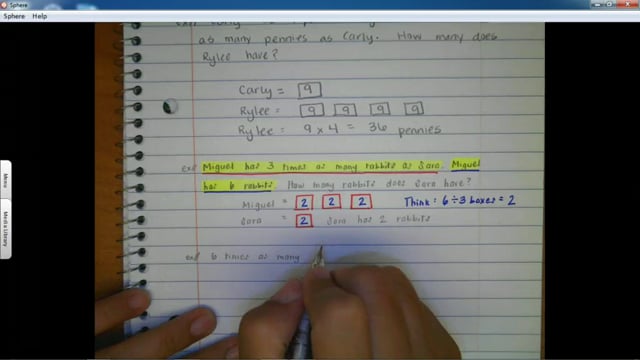 Sphere
Sphere Help
as many pennies as Carly. How many does
Rylee have?
Carly = 9
Rylee = 9 9 9 9
Rylee = 9 x 4 = 36 pennies
ex: Miguel has 3 times as many rabbits as Sara. Miguel
has 6 rabbits. How many rabbits does Sara have?
Miguel = 2 2 2 Think: 6 ÷ 3 boxes = 2
Sara = 2 Sara has 2 rabbits
ex: 6 times as many
Menu
Media Library